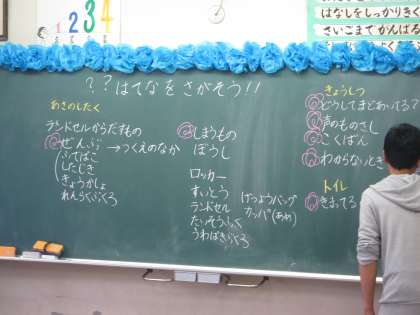 1 2 3 4
はなしをしっかりきく
さいごまでがんばる
??はてなをさがそう!!
あさのしたく
ランドセルからだすもの
ぜんぶ→つくえのなか
ふでばこ
したじき
きょうかしょ
れんらくぶくろ
しまうもの
ぼうし
ロッカー
すいとう
ランドセル
たいそうふく
うわばきぶくろ
げつようバッグ
カッパ(あめ)
きょうしつ
どうしてまどあいてる?
声のものさし
こくばん
わからないとき
トイレ
きまってる